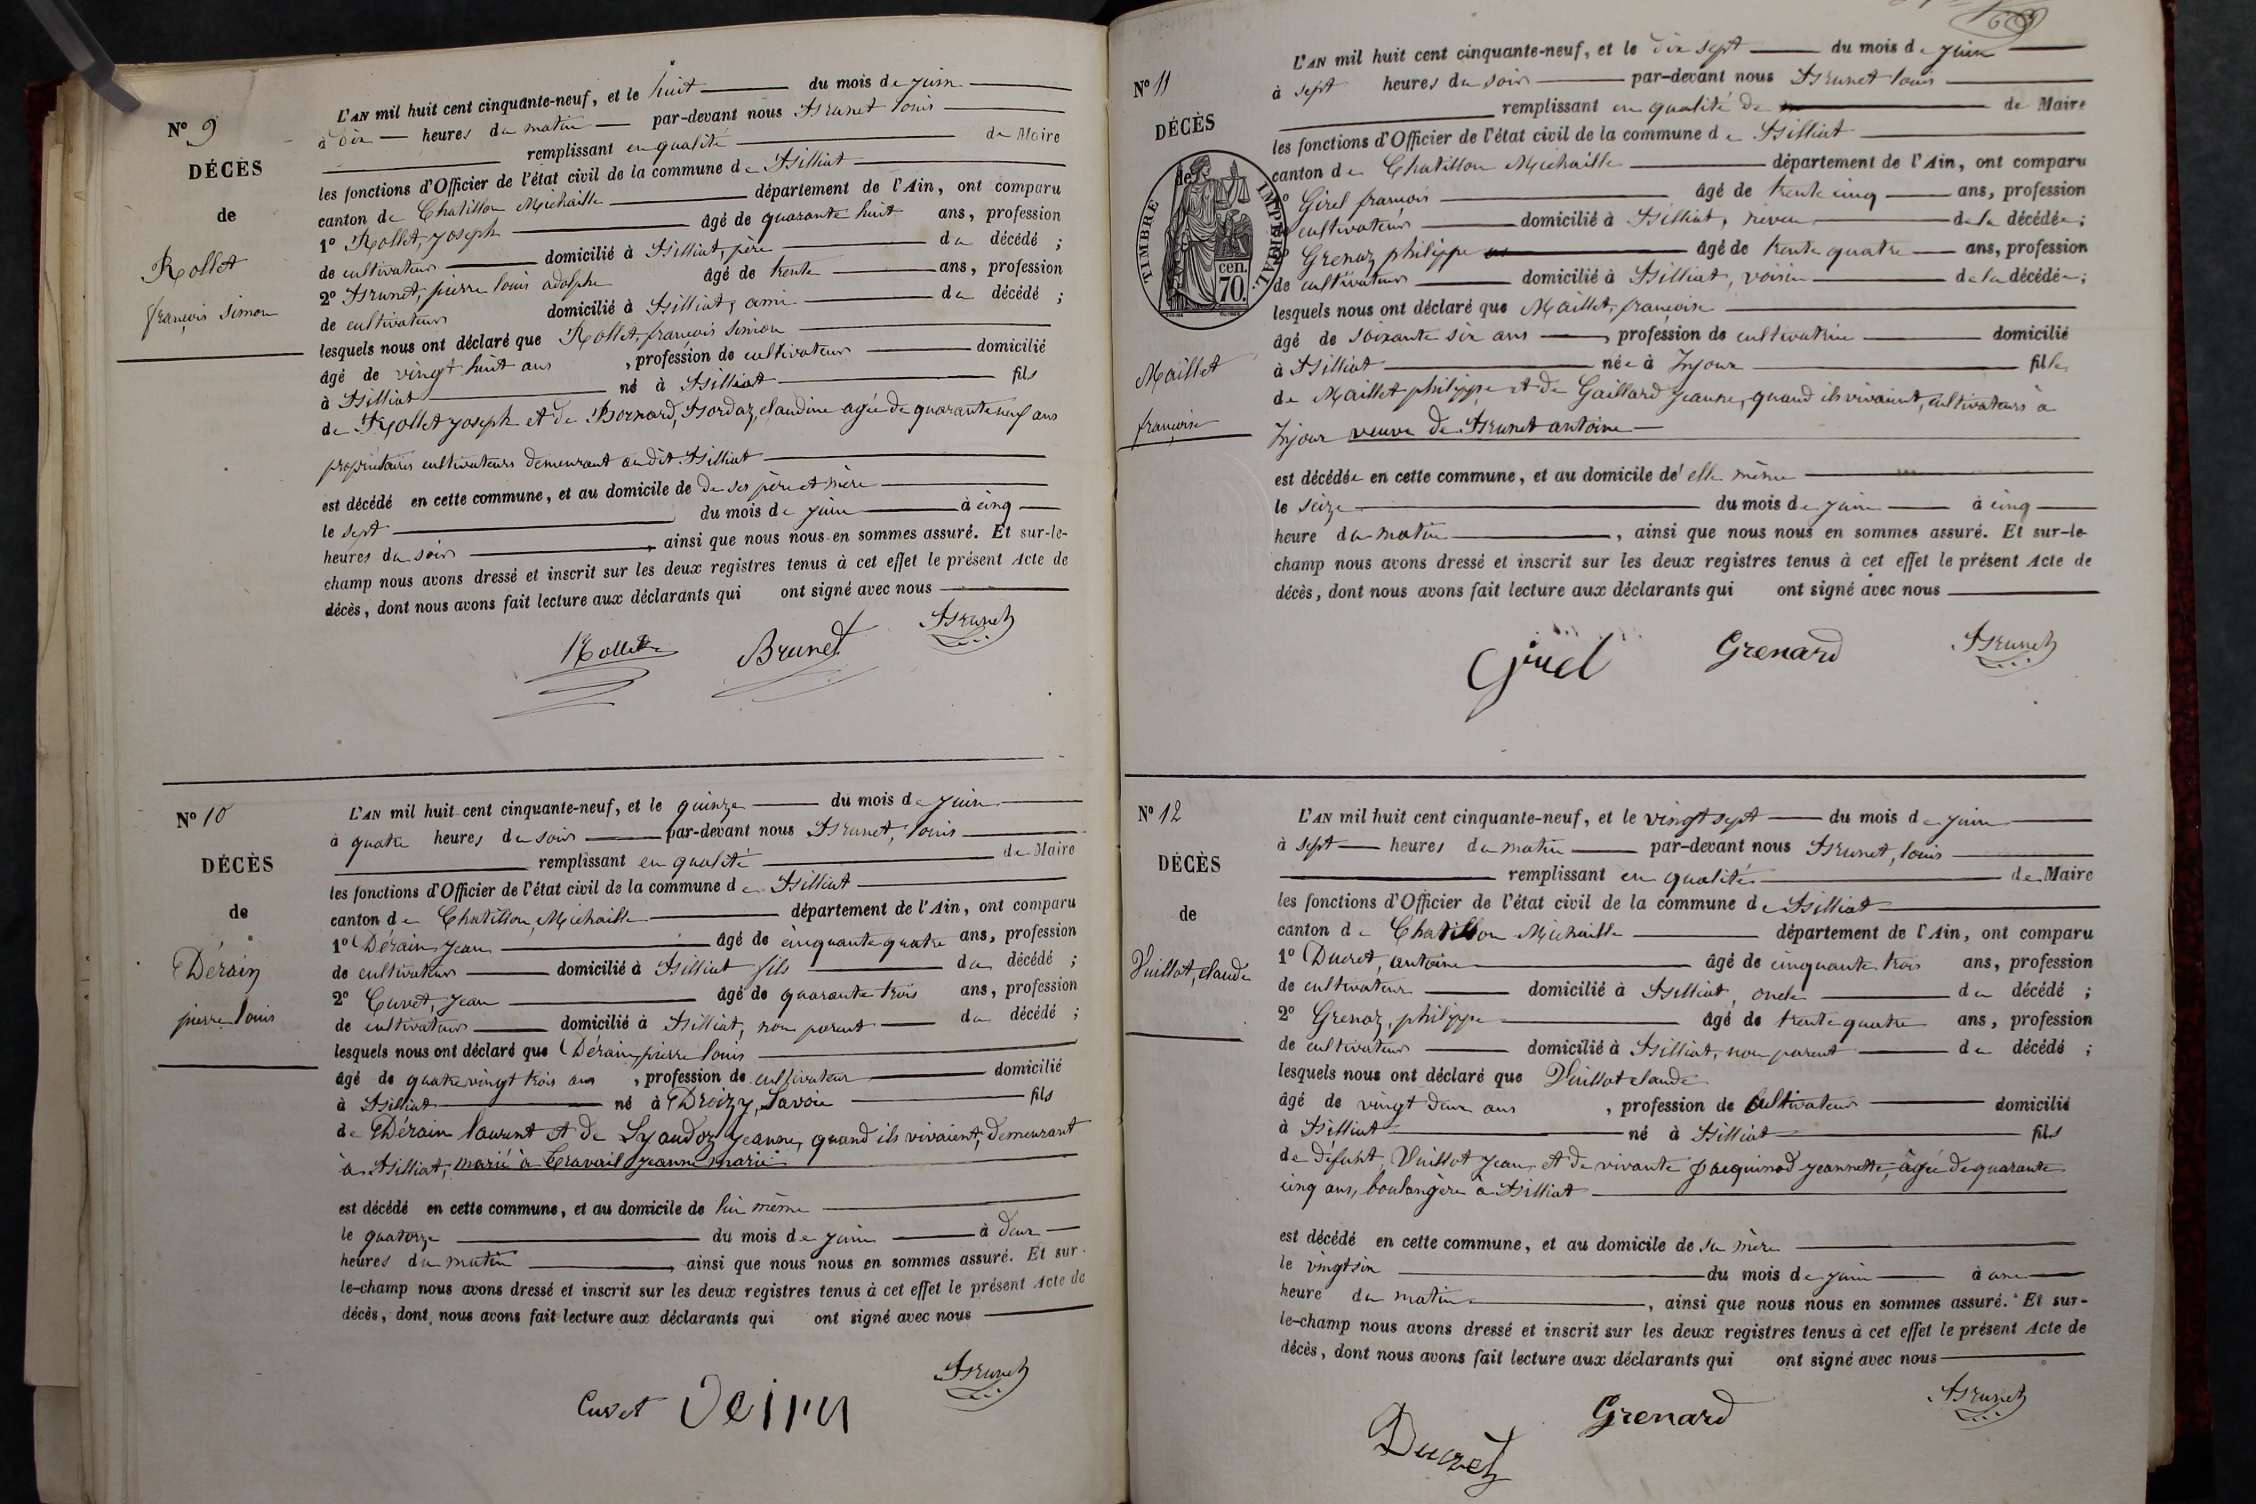 Nº 9
DÉCÈS
de
Rollet
françois simon
L'AN mil huit cent cinquante-neuf, et le huit du mois de juin
à dix heures du matin par-devant nous Brunet louis
remplissant en qualité de Maire
les fonctions d'Officier de l'état civil de la commune de Billiat
canton de Chatillon Michaille département de l'Ain, ont comparu
1º Rollet, joseph âgé de quarante huit ans, profession
de cultivateur domicilié à Billiat, père du décédé ;
2º Brunet, pierre louis adolphe âgé de trente ans, profession
de cultivateur domicilié à Billiat, ami du décédé ;
lesquels nous ont déclaré que Rollet, françois simon
âgé de vingt huit ans , profession de cultivateur domicilié
à Billiat né à Billiat fils
de Rollet joseph et de Bornard, Bordaz, claudine agée de quarante neuf ans
propriétaires cultivateurs demeurant audit Billiat
est décédé en cette commune, et au domicile de de ses père et mère
le sept du mois de juin à cinq
heures du soir , ainsi que nous nous en sommes assuré. Et sur-le-
champ nous avons dressé et inscrit sur les deux registres tenus à cet effet le présent Acte de
décès, dont nous avons fait lecture aux déclarants qui ont signé avec nous
Rollet Brunet Brunet
Nº 10
DÉCÈS
de
Dérain
pierre louis
L'AN mil huit cent cinquante-neuf, et le quinze du mois de juin
à quatre heures du soir par-devant nous Brunet, louis
remplissant en qualité de Maire
les fonctions d'Officier de l'état civil de la commune de Billiat
canton de Chatillon, Michaille département de l'Ain, ont comparu
1º Dérain jean âgé de cinquante quatre ans, profession
de cultivateur domicilié à Billiat fils du décédé ;
2º Cuvet, jean âgé de quarante trois ans, profession
de cultivateur domicilié à Billiat, non parent du décédé ;
lesquels nous ont déclaré que Dérain, pierre louis
âgé de quatre vingt trois ans , profession de cultivateur domicilié
à Billiat né à Droizy, Savoie fils
de Dérain laurent et de Lyaudoz jeanne, quand ils vivaient, demeurant
à Billiat, marié à Cravail jeanne marie
est décédé en cette commune, et au domicile de lui même
le quatorze du mois de juin à deux
heures du matin , ainsi que nous nous en sommes assuré. Et sur-
le-champ nous avons dressé et inscrit sur les deux registres tenus à cet effet le présent Acte de
décès, dont nous avons fait lecture aux déclarants qui ont signé avec nous
Cuvet Brunet
Nº 11
DÉCÈS
de
TIMBRE IMPÉRIAL
70 cen.
Maillet
françoise
L'AN mil huit cent cinquante-neuf, et le dix sept du mois de juin
à sept heures du soir par-devant nous Brunet louis
remplissant en qualité de de Maire
les fonctions d'Officier de l'état civil de la commune de Billiat
canton de Chatillon Michaille département de l'Ain, ont comparu
1º Girel françois âgé de trente cinq ans, profession
de cultivateur domicilié à Billiat, neveu de la décédée ;
2º Grenaz philippe âgé de trente quatre ans, profession
de cultivateur domicilié à Billiat, voisin de la décédée ;
lesquels nous ont déclaré que Maillet, françoise
âgé de soixante six ans , profession de cultivatrice domicilié
à Billiat née à Injoux fille
de Maillet philippe et de Gaillard jeanne, quand ils vivaient, cultivateurs à
Injoux veuve de Brunet antoine
est décédée en cette commune, et au domicile de elle même
le seize du mois de juin à cinq
heure du matin , ainsi que nous nous en sommes assuré. Et sur-le-
champ nous avons dressé et inscrit sur les deux registres tenus à cet effet le présent Acte de
décès, dont nous avons fait lecture aux déclarants qui ont signé avec nous
Girel Grenard Brunet
Nº 12
DÉCÈS
de
Vuillot, claude
L'AN mil huit cent cinquante-neuf, et le vingt sept du mois de juin
à sept heures du matin par-devant nous Brunet, louis
remplissant en qualité de Maire
les fonctions d'Officier de l'état civil de la commune de Billiat
canton de Chatillon Michaille département de l'Ain, ont comparu
1º Ducret, antoine âgé de cinquante trois ans, profession
de cultivateur domicilié à Billiat, oncle du décédé ;
2º Grenaz, philippe âgé de trente quatre ans, profession
de cultivateur domicilié à Billiat, non parent du décédé ;
lesquels nous ont déclaré que Vuillot claude
âgé de vingt deux ans , profession de cultivateur domicilié
à Billiat né à Billiat fils
de défunt, Vuillot jean, et de vivante Jacquinod jeannette, agée de quarante
cinq ans, boulangère à Billiat
est décédé en cette commune, et au domicile de sa mère
le vingt six du mois de juin à une
heure du matin , ainsi que nous nous en sommes assuré. Et sur-
le-champ nous avons dressé et inscrit sur les deux registres tenus à cet effet le présent Acte de
décès, dont nous avons fait lecture aux déclarants qui ont signé avec nous
Ducret Grenard Brunet